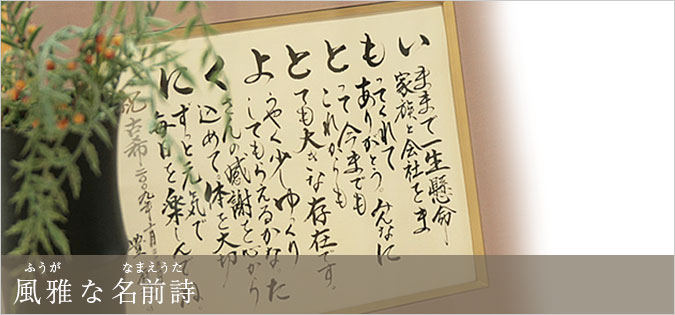 いままで一生懸命
家族と会社をま
もってくれて
ありがとう。みんなに
とって今までも
これからも
とても大きな存在です。
ようやく少しゆっくり
してもらえるかな。た
くさんの感謝を心から
込めて。体を大切
にずっと元気で
毎日を楽しんでね。
祝古希 二〇〇九年十月
ふうが なまえうた
風雅な名前詩